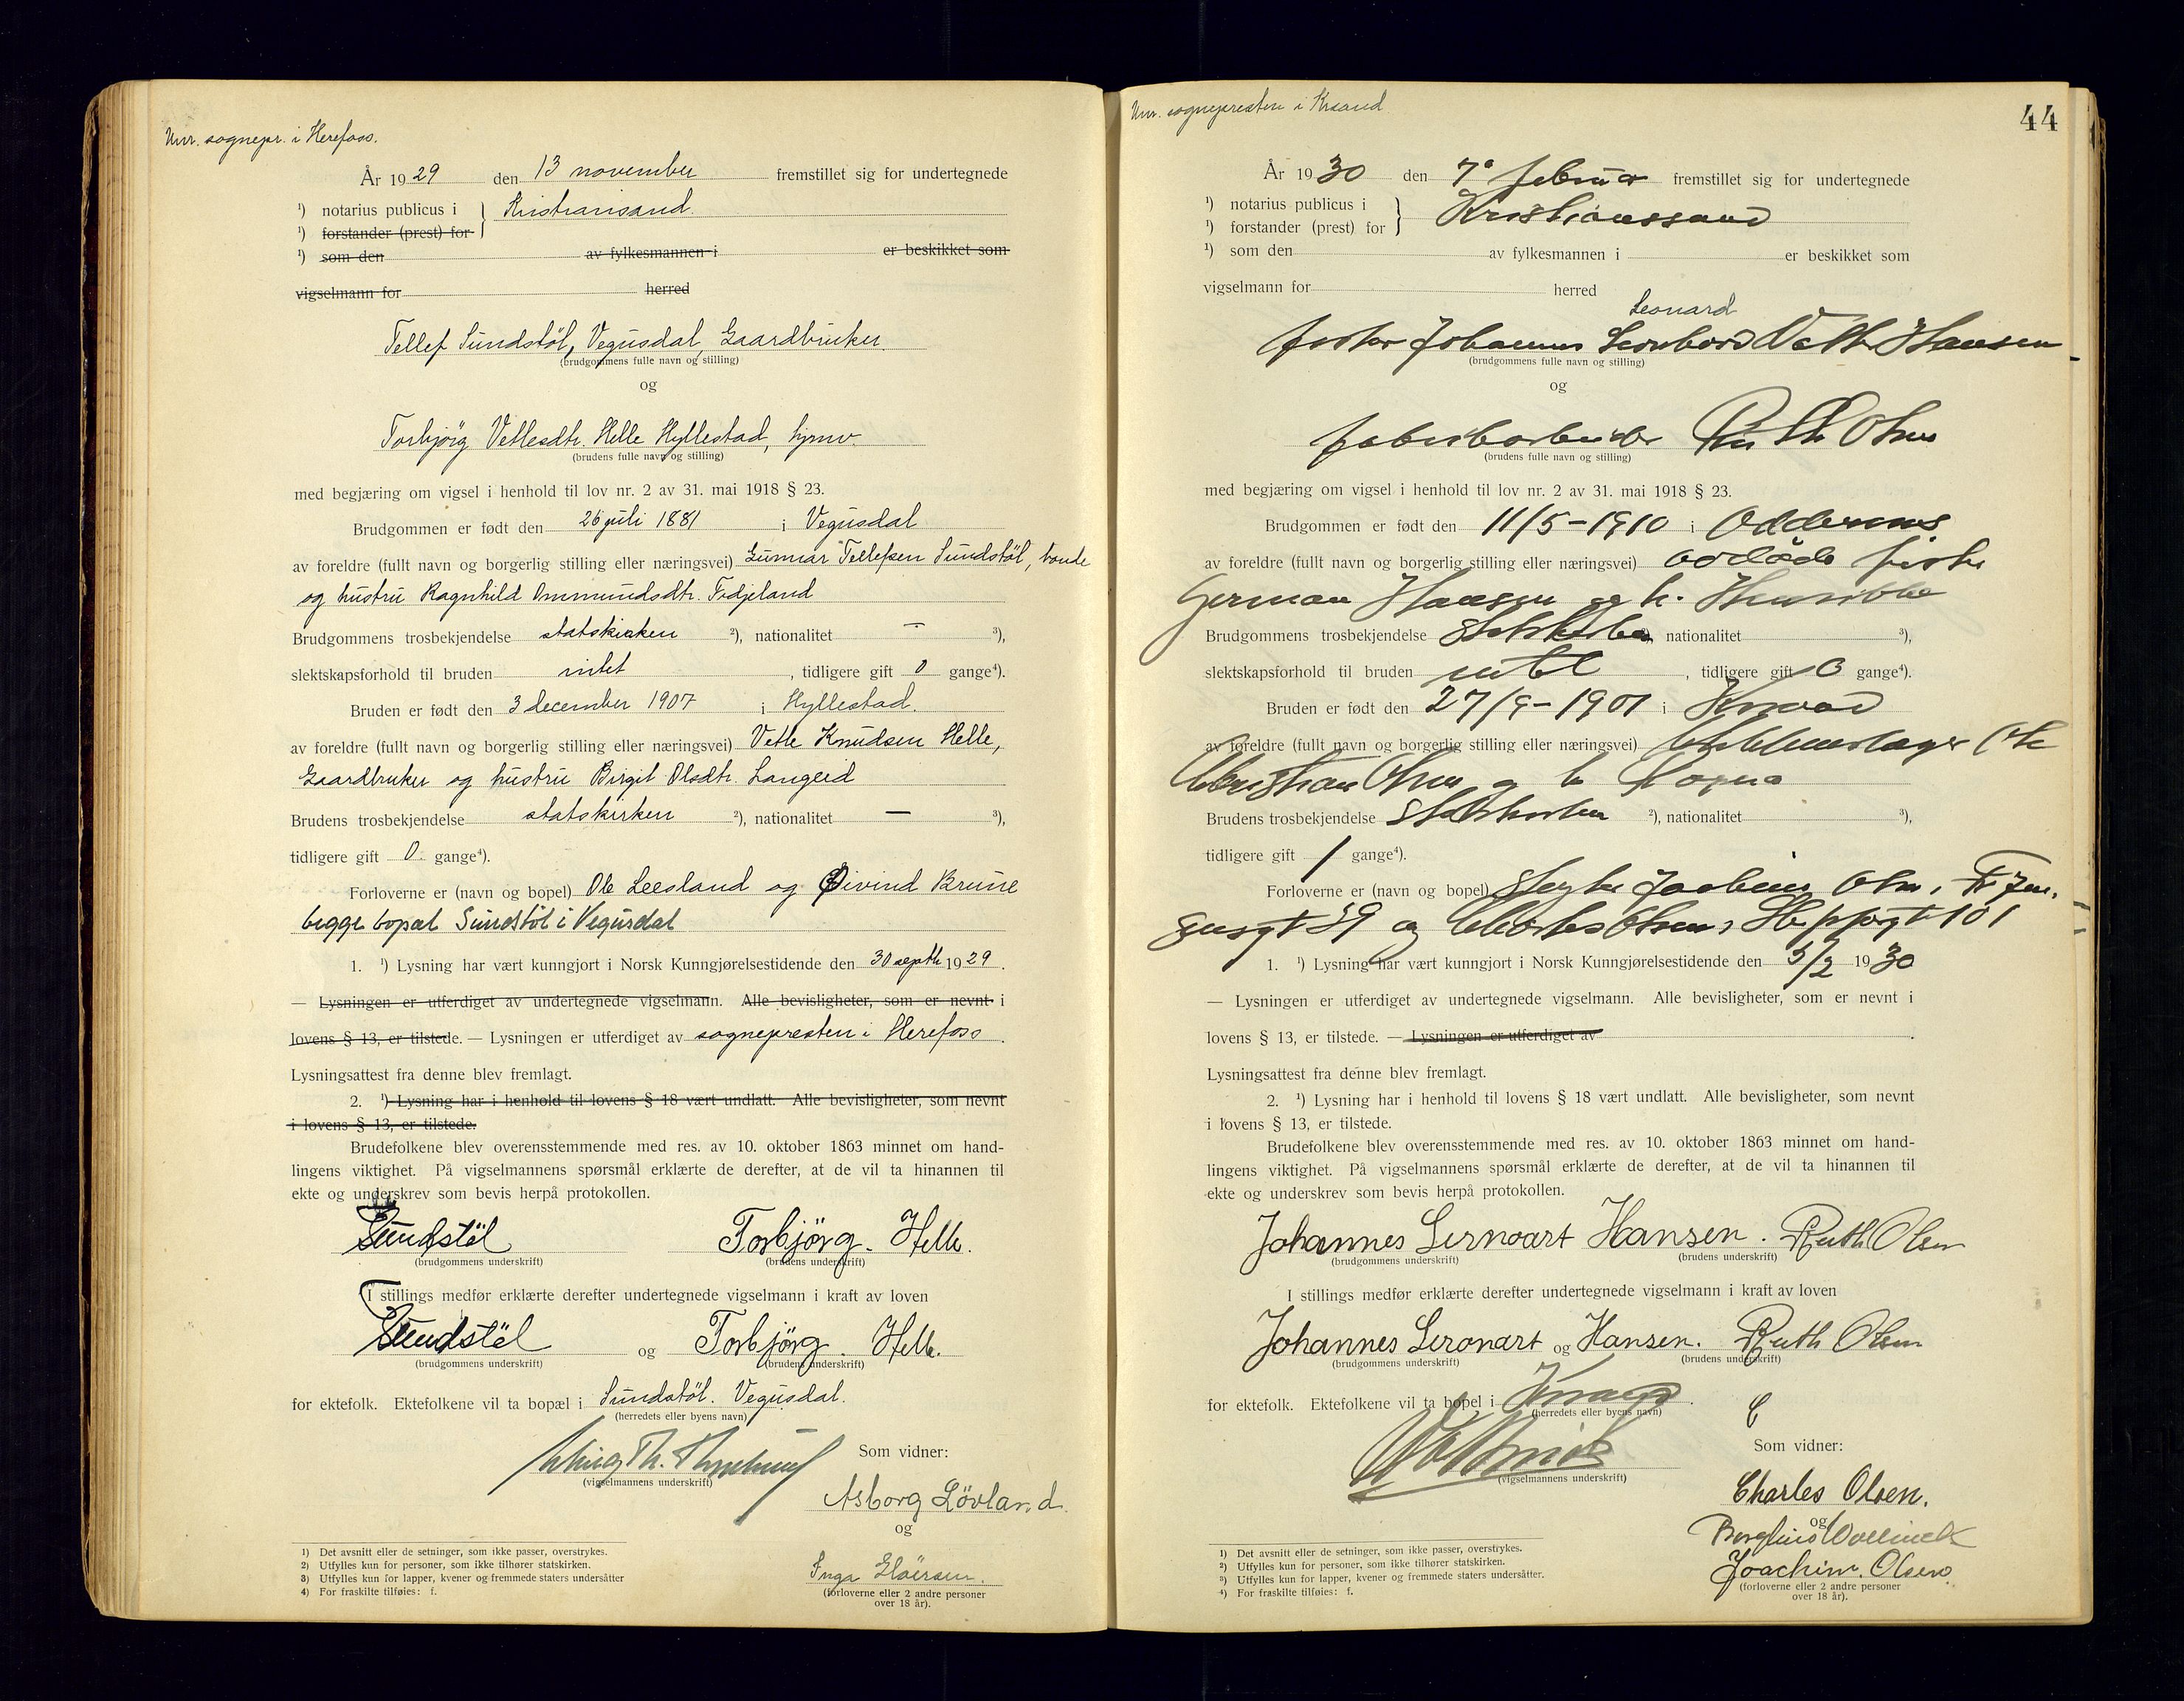 Unr. sognepr. i Herefoss.
År 1929 den 13 november fremstillet sig for undertegnede
¹) notarius publicus i } Kristiansand.
¹) forstander (prest) for
¹) som den av fylkesmannen i er beskikket som
vigselmann for herred
Tellef Sundstöl, Vegusdal, Gaardbruker.
(brudgommens fulle navn og stilling)
og
Torbjörg Vettesdtr. Helle Hyllestad, hjmv.
(brudens fulle navn og stilling)
med begjæring om vigsel i henhold til lov nr. 2 av 31. mai 1918 § 23.
Brudgommen er født den 26 juli 1881 i Vegusdal
av foreldre (fullt navn og borgerlig stilling eller næringsvei) Gunnar Tellefsen Sundstöl, bonde
og hustru Ragnhild Ommundsdtr. Fidjeland
Brudgommens trosbekjendelse statskirken ²), nationalitet — ³),
slektskapsforhold til bruden intet, tidligere gift 0 gange⁴).
Bruden er født den 3 december 1907 i Hyllestad.
av foreldre (fullt navn og borgerlig stilling eller næringsvei) Vetle Knudsen Helle,
Gaardbruker og hustru Birgit Olsdtr. Langeid
Brudens trosbekjendelse statskirken ²), nationalitet — ³),
tidligere gift 0 gange⁴).
Forloverne er (navn og bopel) Ole Leesland og Øivind Brune
begge bopæl Sundstöl i Vegusdal
1. ¹) Lysning har vært kunngjort i Norsk Kunngjørelsestidende den 30 septb 1929.
— Lysningen er utferdiget av undertegnede vigselmann. Alle bevisligheter, som er nevnt i
lovens § 13, er tilstede. — Lysningen er utferdiget av sognepresten i Herefoss.
Lysningsattest fra denne blev fremlagt.
2. ¹) Lysning har i henhold til lovens § 18 vært undlatt. Alle bevisligheter, som nevnt
i lovens § 13, er tilstede.
Brudefolkene blev overensstemmende med res. av 10. oktober 1863 minnet om hand-
lingens viktighet. På vigselmannens spørsmål erklærte de derefter, at de vil ta hinannen til
ekte og underskrev som bevis herpå protokollen.
Sundstöl Torbjörg. Helle.
(brudgommens underskrift) (brudens underskrift)
I stillings medfør erklærte derefter undertegnede vigselmann i kraft av loven
Sundstöl og Torbjörg. Helle.
(brudgommens underskrift) (brudens underskrift)
for ektefolk. Ektefolkene vil ta bopæl i Sundstöl. Vegusdal.
(herredets eller byens navn)
Som vidner:
(vigselmannens underskrift)
Asborg Lövland.
og
Inga
(forloverne eller 2 andre personer
over 18 år).
1) Det avsnitt eller de setninger, som ikke passer, overstrykes.
2) Utfylles kun for personer, som ikke tilhører statskirken.
3) Utfylles kun for lapper, kvener og fremmede staters undersåtter
4) For fraskilte tilføies: f.
Unr. sognepresten i Krsand
44
År 1930 den 7de februar fremstillet sig for undertegnede
¹) notarius publicus i } Kristianssand
¹) forstander (prest) for
¹) som den av fylkesmannen i er beskikket som
vigselmann for herred
Leonard
fisker Johannes Hansen
(brudgommens fulle navn og stilling)
og
fabrikarbeider Ruth Olsen
(brudens fulle navn og stilling)
med begjæring om vigsel i henhold til lov nr. 2 av 31. mai 1918 § 23.
Brudgommen er født den 11/5-1910 i Oddernes
av foreldre (fullt navn og borgerlig stilling eller næringsvei) avdöde fisker
German Hansen og h. Henrikke
Brudgommens trosbekjendelse statskirken ²), nationalitet ³),
slektskapsforhold til bruden intet, tidligere gift 0 gange⁴).
Bruden er født den 27/9-1901 i Krsand
av foreldre (fullt navn og borgerlig stilling eller næringsvei) Ole
Christian Olsen og h. Ragna
Brudens trosbekjendelse statskirken ²), nationalitet ³),
tidligere gift 1 gange⁴).
Forloverne er (navn og bopel) Olsen,
59 og Charles Olsen, 101
1. ¹) Lysning har vært kunngjort i Norsk Kunngjørelsestidende den 5/2 1930
— Lysningen er utferdiget av undertegnede vigselmann. Alle bevisligheter, som er nevnt i
lovens § 13, er tilstede. — Lysningen er utferdiget av .
Lysningsattest fra denne blev fremlagt.
2. ¹) Lysning har i henhold til lovens § 18 vært undlatt. Alle bevisligheter, som nevnt
i lovens § 13, er tilstede.
Brudefolkene blev overensstemmende med res. av 10. oktober 1863 minnet om hand-
lingens viktighet. På vigselmannens spørsmål erklærte de derefter, at de vil ta hinannen til
ekte og underskrev som bevis herpå protokollen.
Johannes Lernoart Hansen. Ruth Olsen
(brudgommens underskrift) (brudens underskrift)
I stillings medfør erklærte derefter undertegnede vigselmann i kraft av loven
Johannes Leronart og Hansen. Ruth Olsen
(brudgommens underskrift) (brudens underskrift)
for ektefolk. Ektefolkene vil ta bopel i Krsand.
(herredets eller byens navn)
C
Som vidner:
(vigselmannens underskrift)
Charles Olsen.
og
Joachim. Olsen.
(forloverne eller 2 andre personer
over 18 år).
¹) Det avsnitt eller de setninger, som ikke passer, overstrykes.
²) Utfylles kun for personer, som ikke tilhører statskirken.
³) Utfylles kun for lapper, kvener og fremmede staters undersåtter.
⁴) For fraskilte tilføies: f.